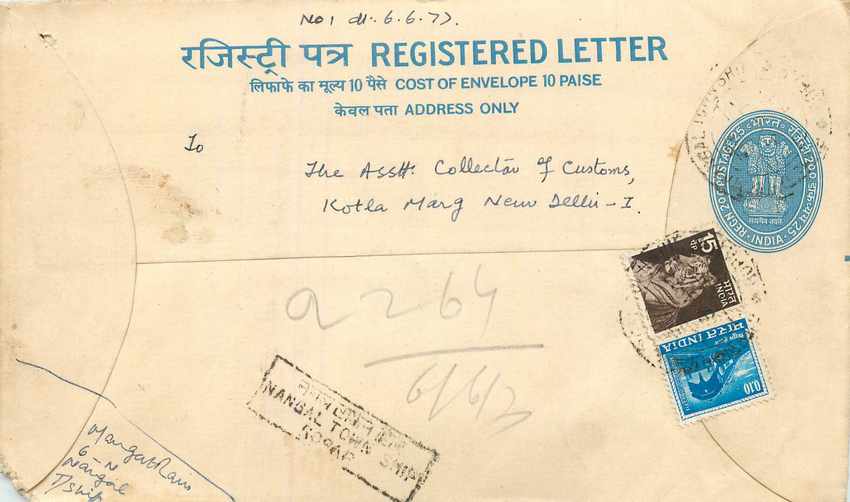 No 1 dt. 6.6.73.
रजिस्ट्री पत्र REGISTERED LETTER
लिफाफे का मूल्य 10 पैसे COST OF ENVELOPE 10 PAISE
केवल पता ADDRESS ONLY
To
The Asstt. Collector of Customs,
Kotla Marg New Delhi-I.
REGN 200 POSTAGE 25 भारत रजिस्ट्री 200 डाक-व्यय 25
सत्यमेव जयते
INDIA
15
भारत
INDIA
भारत INDIA
0.10
2264
6/6/3
NANGAL TOWN SHIP
ROPAR
MangatRam
6-N
Nangal
T/ship